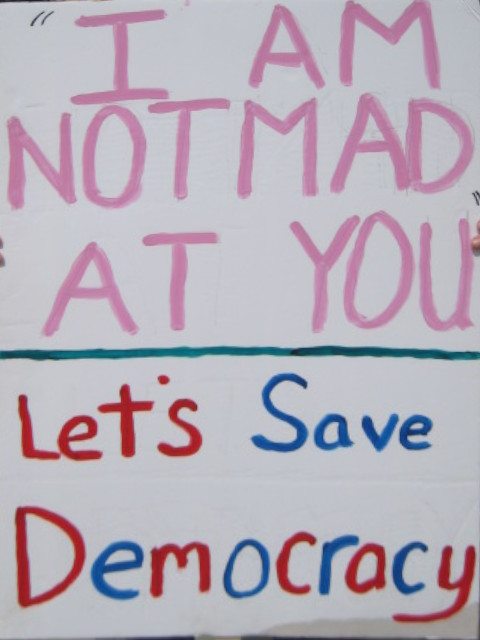 "I AM
NOT MAD
AT YOU"
Let's Save
Democracy